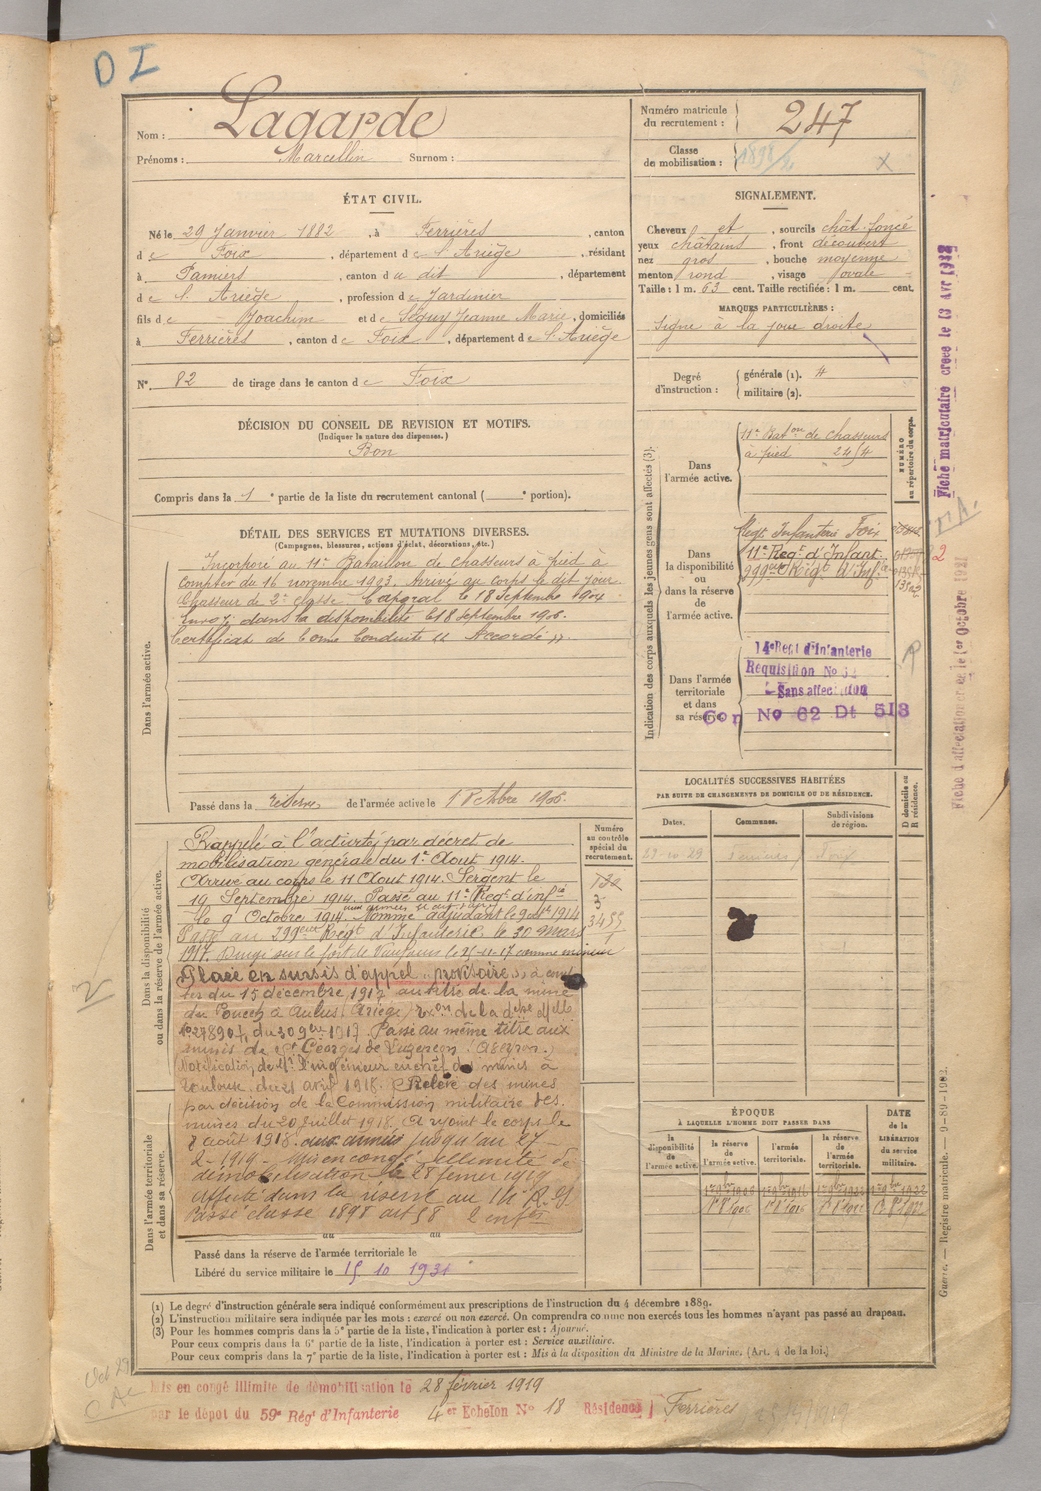 D I
Nom : Lagarde
Prénoms : Marcellin Surnom :
Numéro matricule du recrutement : 247
Classe de mobilisation : 1898/2 X
ÉTAT CIVIL.
Né le 29 Janvier 1882, à Ferrières, canton
de Foix, département de l'Ariège, résidant
à Pamiers, canton du dit, département
de l'Ariège, profession de Jardinier
fils de Joachim et de Séguy Jeanne Marie, domiciliés
à Ferrières, canton de Foix, département de l'Ariège
N° 82 de tirage dans le canton de Foix
DÉCISION DU CONSEIL DE REVISION ET MOTIFS.
(Indiquer la nature des dispenses.)
Bon
Compris dans la 1e partie de la liste du recrutement cantonal ( e portion).
DÉTAIL DES SERVICES ET MUTATIONS DIVERSES.
(Campagnes, blessures, actions d'éclat, décorations, etc.)
Dans l'armée active.
Incorporé au 11e Bataillon de chasseurs à pied à
compter du 16 novembre 1903. Arrivé au corps le dit jour
Chasseur de 2e classe. Caporal le 18 Septembre 1904
Envoyé dans la disponibilité le 18 septembre 1906.
Certificat de bonne Conduite "Accordé".
Passé dans la réserve de l'armée active le 1 Octobre 1906.
Dans la disponibilité ou dans la réserve de l'armée active.
Numéro au contrôle spécial du recrutement.
Rappelé à l'activité par décret de
mobilisation générale du 1er Aout 1914.
Arrivé au corps le 11 Aout 1914. Sergent le
19 Septembre 1914. Passé au 11e Regt d'infie
le 9 Octobre 1914. Nommé adjudant le 9 1914
Passé au 299eme Regt d'Infanterie le 30 Mars
1917. Dirigé sur le fort de le 25-11-17 comme mineur
Placé en sursis d'appel provisoire, à comp
ter du 15 décembre 1917 au titre de la mine
du Pouech à Aulus (Ariège) de la
N° 27890 du 30 9bre 1917. Passé au même titre aux
mines de St Georges de Luzençon (Aveyron.)
Notification de Mr l'ingénieur en chef des mines à
Toulouse du 21 avril 1918. Relevé des mines
par décision de la Commission militaire des
mines du 20 Juillet 1918. le corps le
8 août 1918. aux armées jusqu'au 27-
2-1919. Mis en congé illimité de
démobilisation le 28 fevrier 1919
affecté dans la réserve au 14 R. I
Passé classe 1898 art 58 2 enfts
Dans l'armée territoriale et dans sa réserve.
Passé dans la réserve de l'armée territoriale le
Libéré du service militaire le 15 10 1931
SIGNALEMENT.
Cheveux et, sourcils chât-foncé
yeux châtains, front découvert
nez gros, bouche moyenne
menton rond, visage ovale
Taille : 1 m. 63 cent. Taille rectifiée : 1 m. cent.
MARQUES PARTICULIÈRES :
Signe à la joue droite
Degré d'instruction : générale (1). 4
militaire (2).
Indication des corps auxquels les jeunes gens sont affectés (3).
NUMÉRO au répertoire du corps.
Dans l'armée active.
11e Baton de Chasseurs
à pied 2414
Dans la disponibilité ou dans la réserve de l'armée active.
Regt Infanterie Foix
11e Regt d'Infant
299eme Regt d'Infie
Dans l'armée territoriale et dans sa réserve.
14e Regt d'Infanterie
Requisition No 62
Sans affectation
Cor No 62 Dt 513
LOCALITÉS SUCCESSIVES HABITÉES
PAR SUITE DE CHANGEMENTS DE DOMICILE OU DE RÉSIDENCE.
Dates. Communes. Subdivisions de région. D domicile ou R résidence.
27-10-29 Foix
ÉPOQUE
À LAQUELLE L'HOMME DOIT PASSER DANS
DATE de la LIBÉRATION du service militaire.
la disponibilité de l'armée active.
la réserve de l'armée active.
l'armée territoriale.
la réserve de l'armée territoriale.
Fiche matriculaire créée le 13 Avr 1932
Fiche d'affectation le 1er Octobre 1921
2
Guerre. — Registre matricule. — 9-89-1902.
(1) Le degré d'instruction générale sera indiqué conformément aux prescriptions de l'instruction du 4 décembre 1889.
(2) L'instruction militaire sera indiquée par les mots : exercé ou non exercé. On comprendra comme non exercés tous les hommes n'ayant pas passé au drapeau.
(3) Pour les hommes compris dans la 5e partie de la liste, l'indication à porter est : Ajourné.
Pour ceux compris dans la 6e partie de la liste, l'indication à porter est : Service auxiliaire.
Pour ceux compris dans la 7e partie de la liste, l'indication à porter est : Mis à la disposition du Ministre de la Marine. (Art. 4 de la loi.)
Mis en congé illimité de démobilisation le 28 février 1919
par le dépot du 59e Rég' d'Infanterie 4er Echelon No 18 Résidence Ferrières